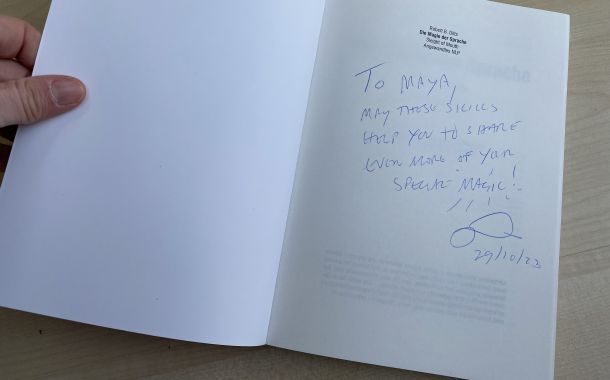 Robert B. Dilts
Die Magie der Sprache
Sleight of Mouth
Angewandtes NLP
To MAYA,
MAY THESE SKILLS
HELP YOU TO SHARE
EVEN MORE OF YOUR
SPECIAL MAGIC!
29/10/23